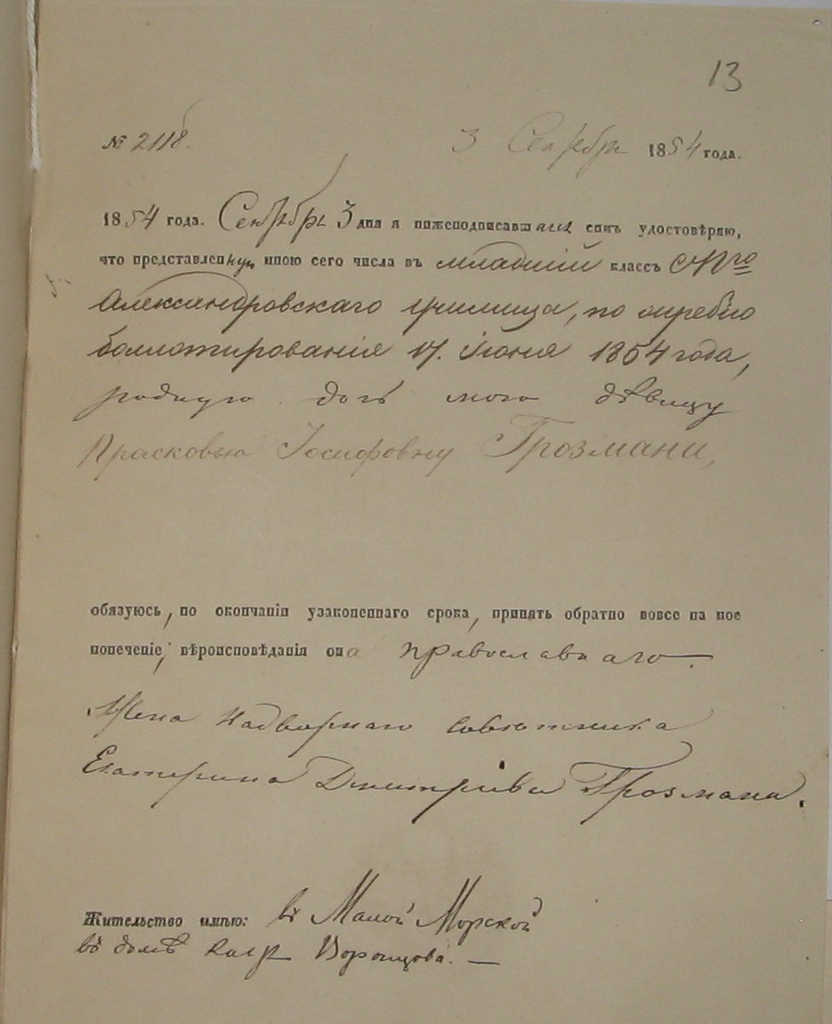 13
№ 2118. 3 Сентября 1854 года.
1854 года. Сентября 3 дня я нижеподписавшаяся симъ удостовѣряю,
что представленную мною сего числа въ младшій классъ СПго
Александровскаго училища, по жребію
баллотированія 17. Іюня 1854 года,
родную дочь мою дѣвицу
Прасковью Іосифовну Грозмани,
обязуюсь, по окончаніи узаконеннаго срока, принять обратно вовсе на мое
попеченіе; вѣроисповѣданія она православнаго.
Жена Надворнаго Совѣтника
Екатерина Дмитріева Грозмани.
Жительство имѣю: въ Малой Морской
въ домѣ Воронцова. —